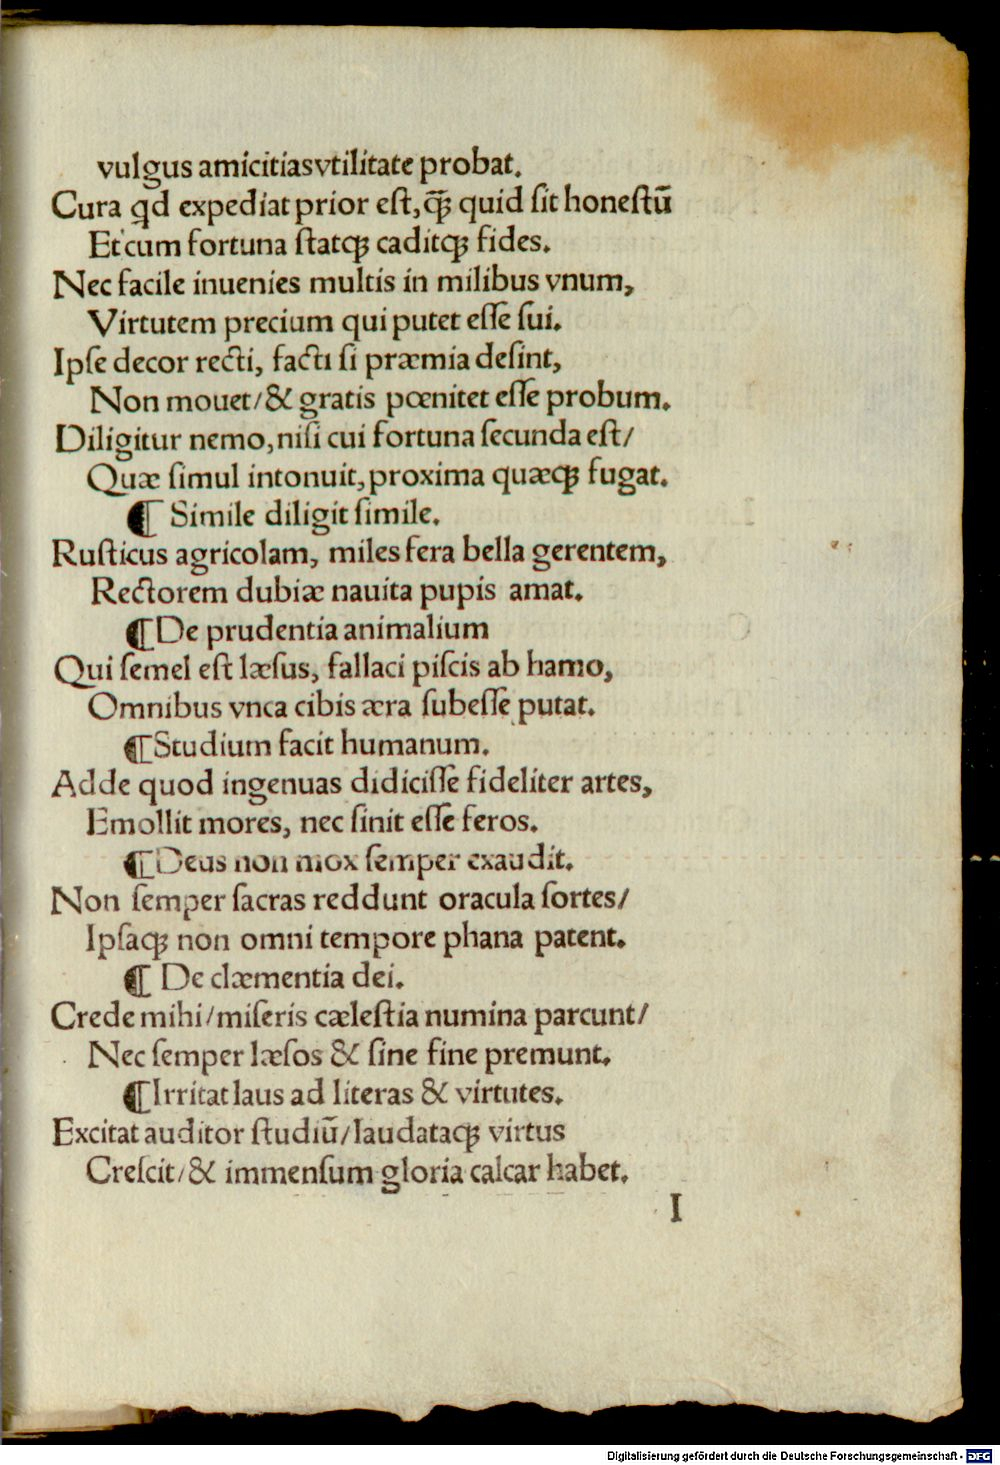 vulgus amicitias vtilitate probat.
Cura qd expediat prior eſt, q̃ꝫ quid ſit honeſtū
Et cum fortuna ſtatqꝫ caditqꝫ fides.
Nec facile inuenies multis in milibus vnum,
Virtutem precium qui putet eſſe ſui.
Ipſe decor recti, facti ſi præmia deſint,
Non mouet/& gratis pœnitet eſſe probum.
Diligitur nemo, niſi cui fortuna ſecunda eſt/
Quæ ſimul intonuit, proxima quæqꝫ fugat.
¶ Simile diligit ſimile.
Ruſticus agricolam, miles fera bella gerentem,
Rectorem dubiæ nauita pupis amat.
¶ De prudentia animalium
Qui ſemel eſt læſus, fallaci piſcis ab hamo,
Omnibus vnca cibis æra ſubeſſe putat.
¶ Studium facit humanum.
Adde quod ingenuas didiciſſe fideliter artes,
Emollit mores, nec ſinit eſſe feros.
¶ Deus non mox ſemper exaudit.
Non ſemper ſacras reddunt oracula ſortes/
Ipſaqꝫ non omni tempore phana patent.
¶ De clæmentia dei.
Crede mihi/miſeris cæleſtia numina parcunt/
Nec ſemper læſos & ſine fine premunt.
¶ Irritat laus ad literas & virtutes.
Excitat auditor ſtudiū/laudataqꝫ virtus
Creſcit/& immenſum gloria calcar habet.
I
Digitalisierung gefördert durch die Deutsche Forschungsgemeinschaft - DFG